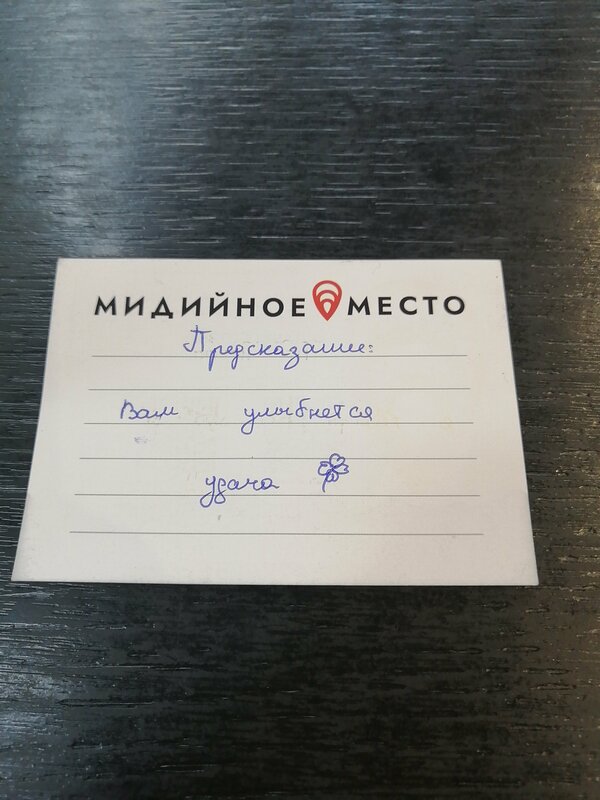 МИДИЙНОЕ МЕСТО
Предсказание:
Вам улыбнется
удача